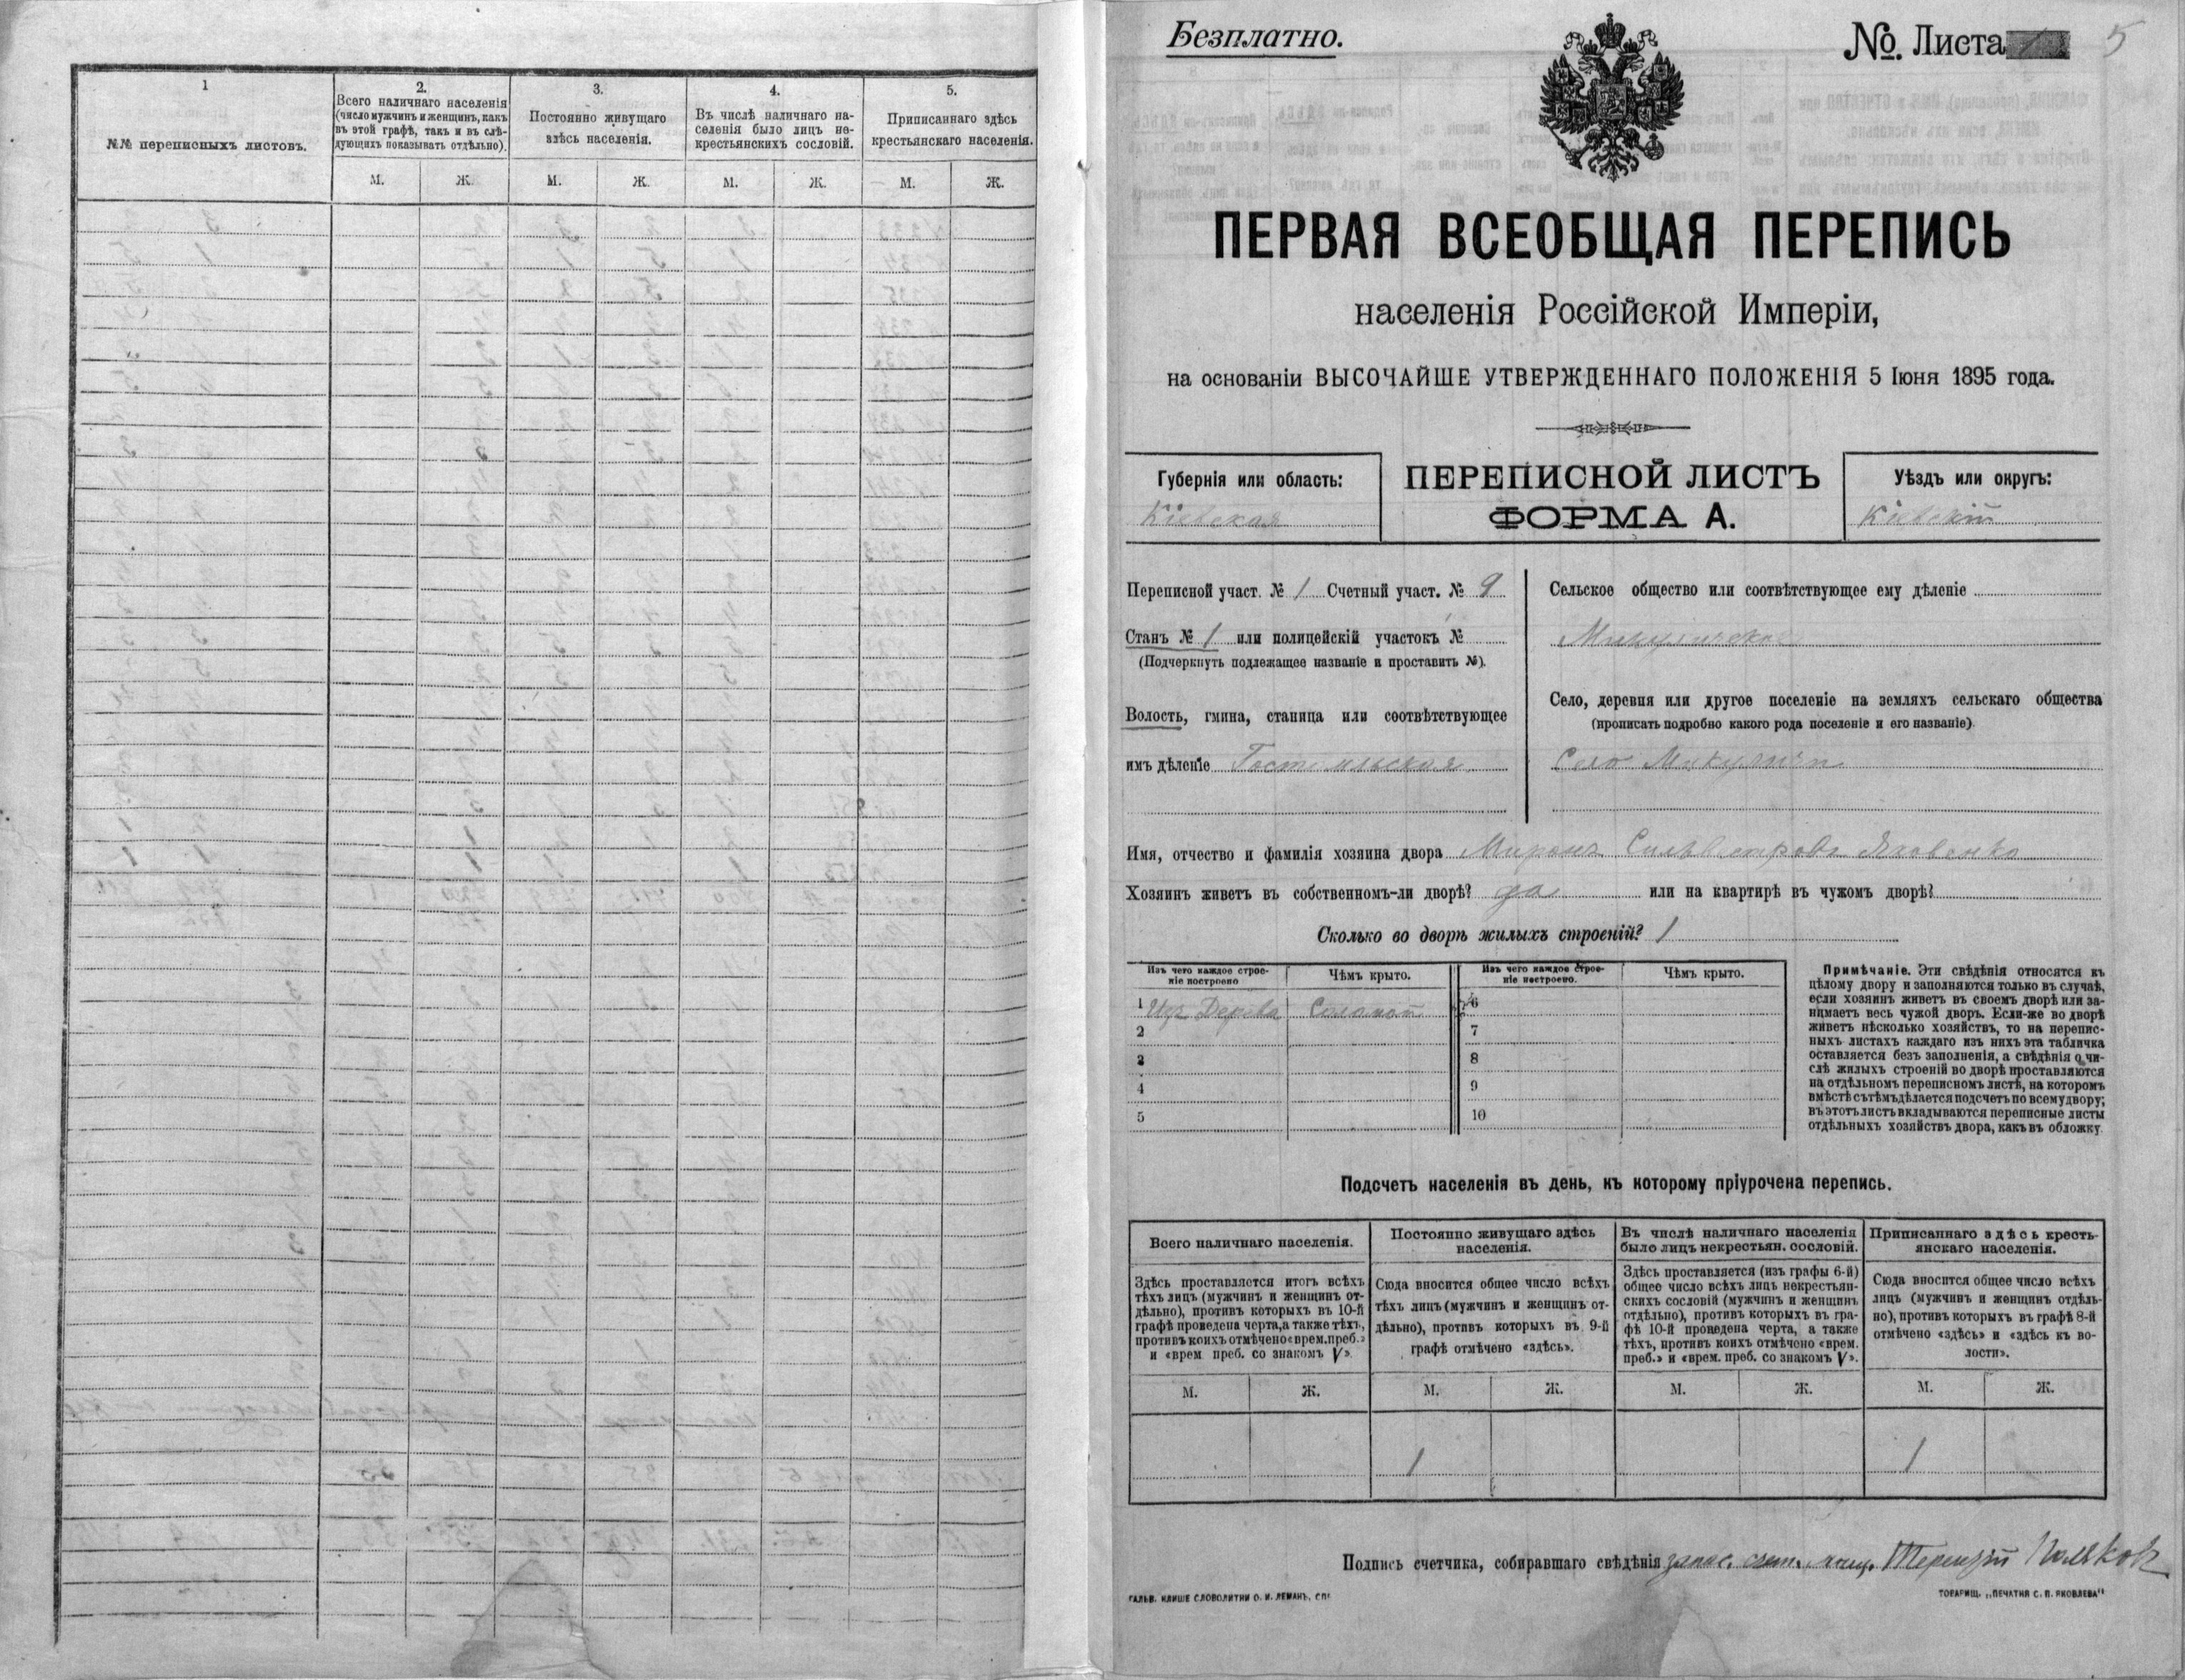 1
№№ переписныхъ листовъ.
2.
Всего наличнаго населенія
(число мужчинъ и женщинъ, какъ
въ этой графѣ, такъ и въ слѣ-
дующихъ показывать отдѣльно).
3.
Постоянно живущаго
здѣсь населенія.
4.
Въ числѣ наличнаго на-
селенія было лицъ не-
крестьянскихъ сословій.
5.
Приписаннаго здѣсь
крестьянскаго населенія.
М. Ж. М. Ж. М. Ж. М. Ж.
Безплатно.
№ Листа 5
ПЕРВАЯ ВСЕОБЩАЯ ПЕРЕПИСЬ
населенія Россійской Имперіи,
на основаніи ВЫСОЧАЙШЕ УТВЕРЖДЕННАГО ПОЛОЖЕНІЯ 5 Іюня 1895 года.
Губернія или область:
Кіевская
ПЕРЕПИСНОЙ ЛИСТЪ
ФОРМА А.
Уѣздъ или округъ:
Кіевскій
Переписной участ. № 1 Счетный участ. № 9
Станъ № 1 или полицейскій участокъ №
(Подчеркнуть подлежащее названіе и проставить №).
Волость, гмина, станица или соотвѣтствующее
имъ дѣленіе Гостомльская
Сельское общество или соотвѣтствующее ему дѣленіе
Микуличское
Село, деревня или другое поселеніе на земляхъ сельскаго общества
(прописать подробно какого рода поселеніе и его названіе).
Село Микуличи
Имя, отчество и фамилія хозяина двора Миронъ Сильвестровъ Яковенко
Хозяинъ живетъ въ собственномъ-ли дворѣ? да или на квартирѣ въ чужомъ дворѣ?
Сколько во дворѣ жилыхъ строеній? 1
Изъ чего каждое строе-
ніе построено
Чѣмъ крыто.
Изъ чего каждое строе-
ніе построено.
Чѣмъ крыто.
1 Изъ Дерева Соломой 6
2 7
3 8
4 9
5 10
Примѣчаніе. Эти свѣдѣнія относятся къ
цѣлому двору и заполняются только въ случаѣ,
если хозяинъ живетъ въ своемъ дворѣ или за-
нимаетъ весь чужой дворъ. Если-же во дворѣ
живетъ нѣсколько хозяйствъ, то на перепис-
ныхъ листахъ каждаго изъ нихъ эта табличка
оставляется безъ заполненія, а свѣдѣнія о чи-
слѣ жилыхъ строеній во дворѣ проставляются
на отдѣльномъ переписномъ листѣ, на которомъ
вмѣстѣ съ тѣмъ дѣлается подсчетъ по всему двору;
въ этотъ листъ вкладываются переписные листы
отдѣльныхъ хозяйствъ двора, какъ въ обложку.
Подсчетъ населенія въ день, къ которому пріурочена перепись.
Всего наличнаго населенія.
Постоянно живущаго здѣсь
населенія.
Въ числѣ наличнаго населенія
было лицъ некрестьян. сословій.
Приписаннаго здѣсь кресть-
янскаго населенія.
Здѣсь проставляется итогъ всѣхъ
тѣхъ лицъ (мужчинъ и женщинъ от-
дѣльно), противъ которыхъ въ 10-й
графѣ проведена черта, а также тѣхъ,
противъ коихъ отмѣчено «врем. преб.»
и «врем преб. со знакомъ V».
Сюда вносится общее число всѣхъ
тѣхъ лицъ (мужчинъ и женщинъ от-
дѣльно), противъ которыхъ въ 9-й
графѣ отмѣчено «здѣсь».
Здѣсь проставляется (изъ графы 6-й)
общее число всѣхъ лицъ некрестьян-
скихъ сословій (мужчинъ и женщинъ
отдѣльно), противъ которыхъ въ гра-
фѣ 10-й проведена черта, а также
тѣхъ, противъ коихъ отмѣчено «врем.
преб.» и «врем. преб. со знакомъ V».
Сюда вносится общее число всѣхъ
лицъ (мужчинъ и женщинъ отдѣль-
но), противъ которыхъ въ графѣ 8-й
отмѣчено «здѣсь» и «здѣсь къ во-
лости».
М. Ж. М. Ж. М. Ж. М. Ж.
1 1
Подпись счетчика, собиравшаго свѣдѣнія запас. Терентій Поляковъ
ГАЛЬВ. КЛИШЕ СЛОВОЛИТНИ О. И. ЛЕМАНЪ, СПБ
ТОВАРИЩ. „ПЕЧАТНЯ С. П. ЯКОВЛЕВА"